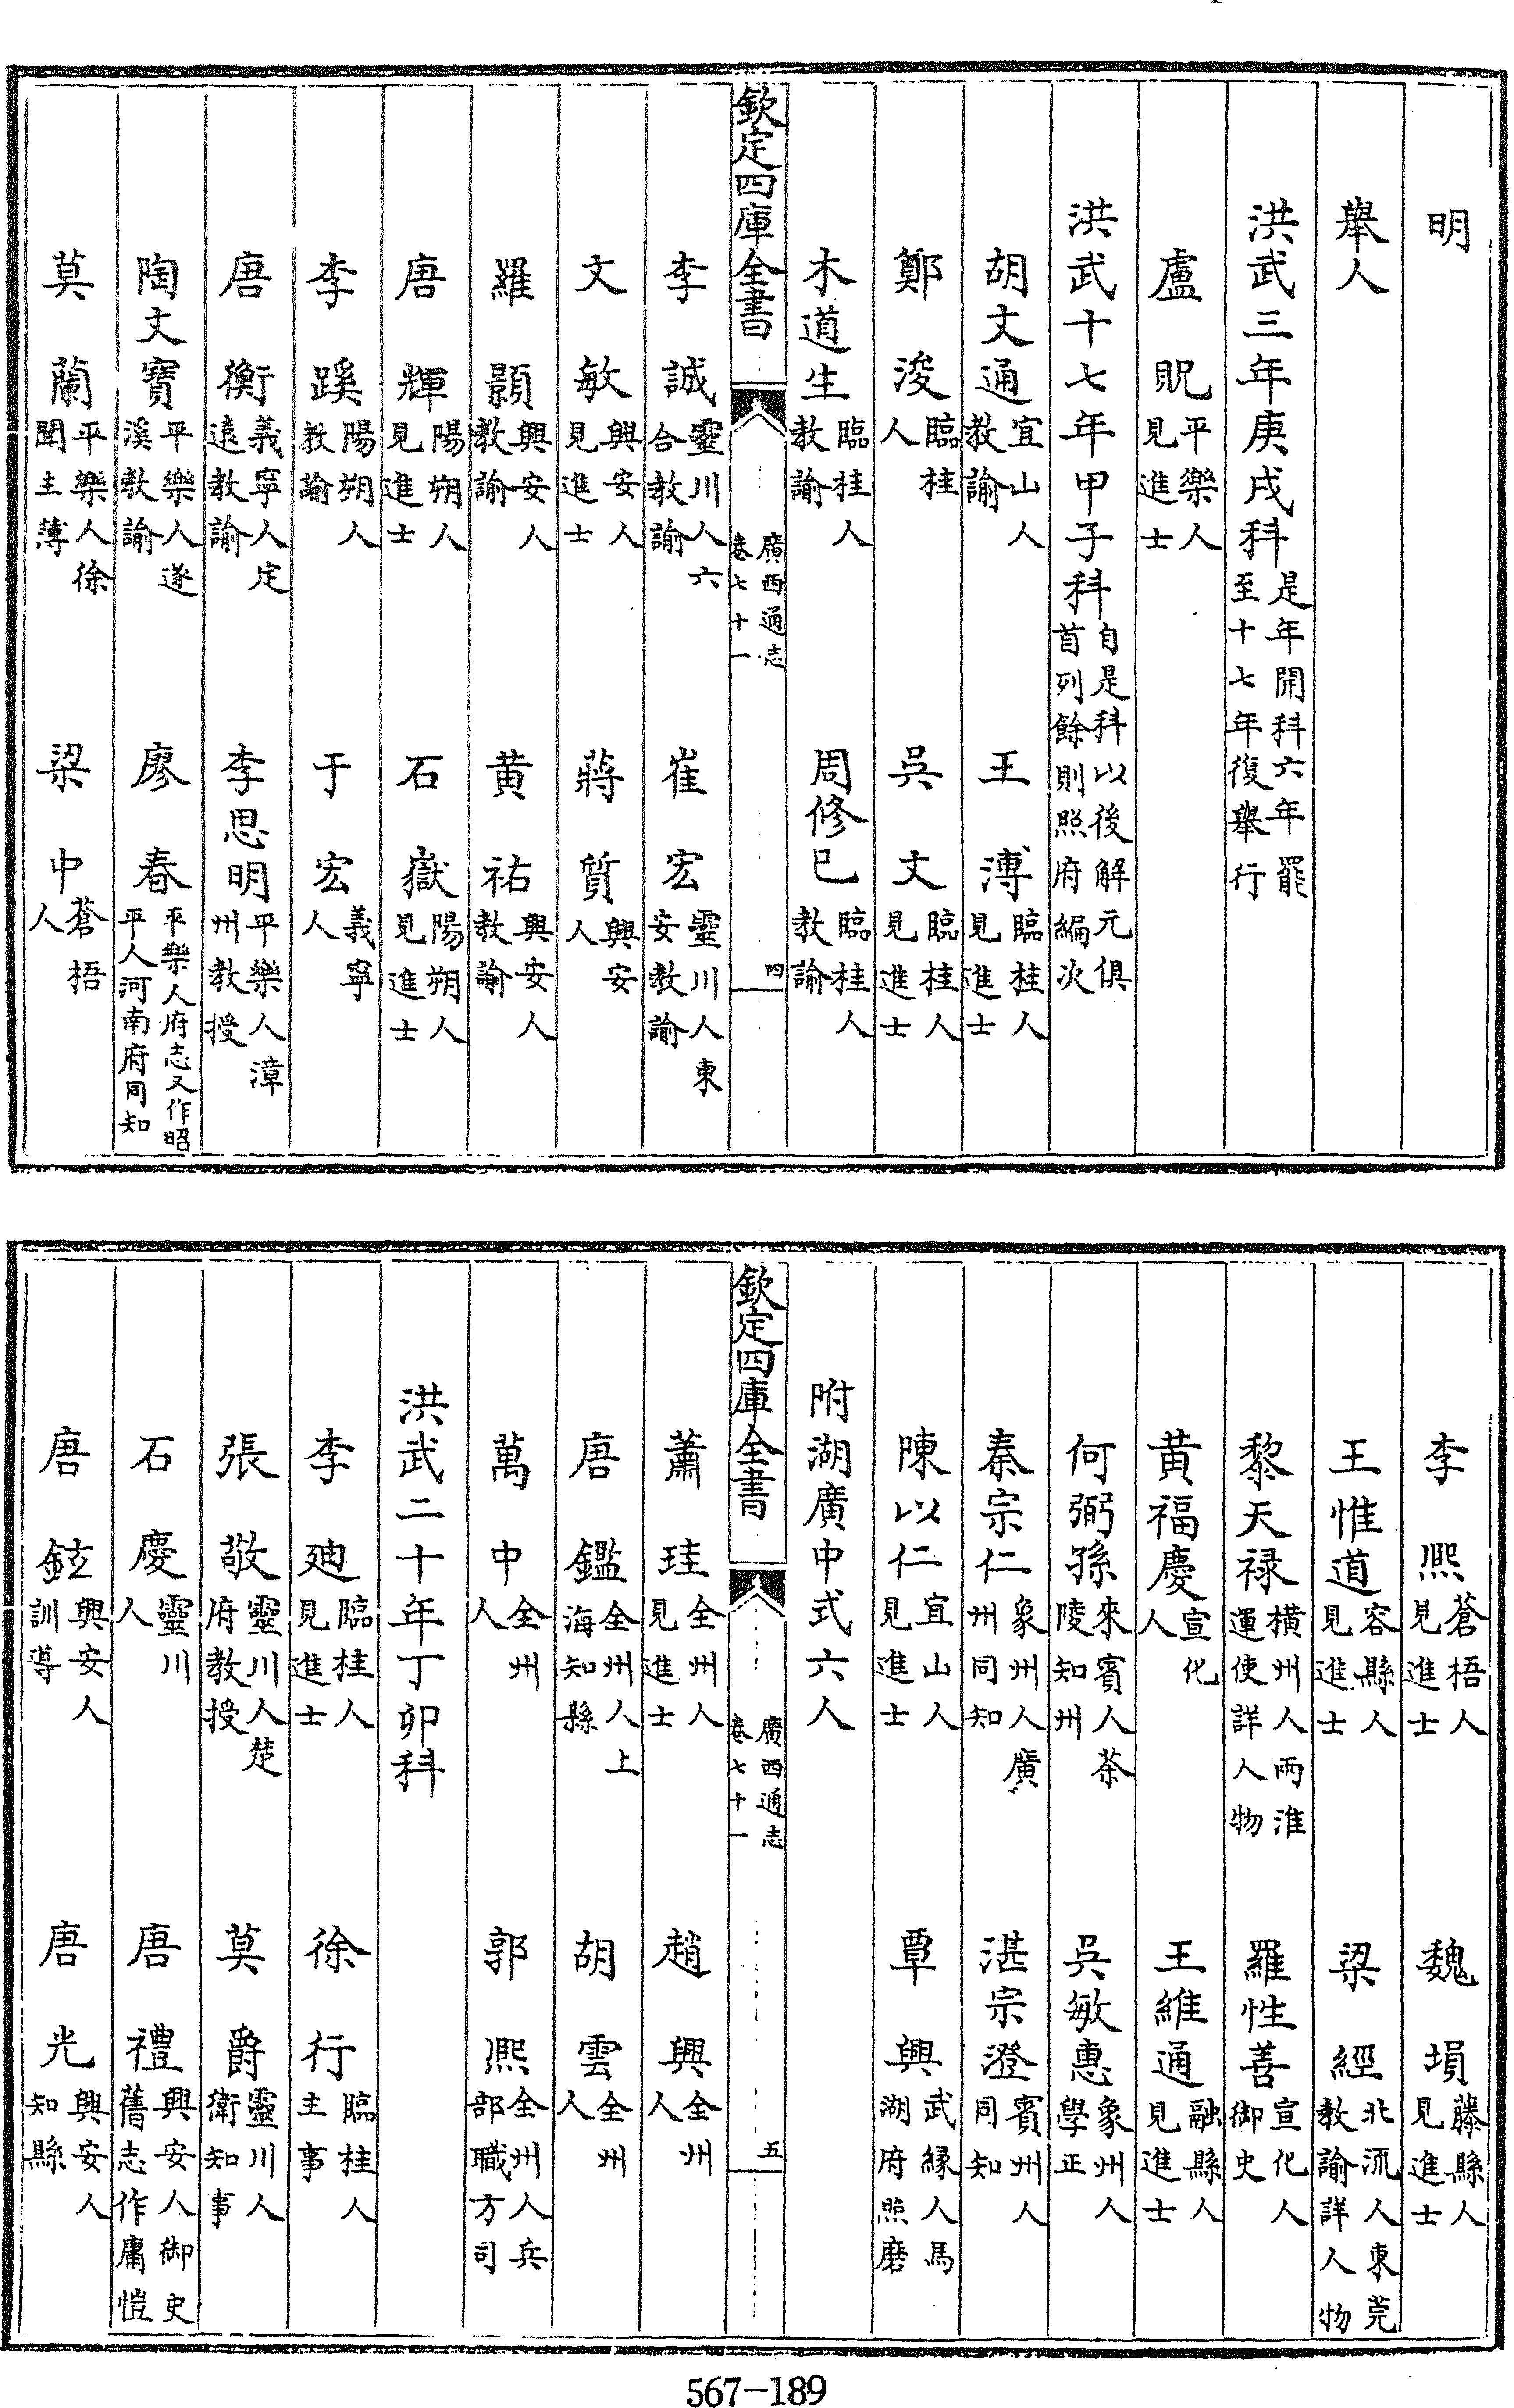 明
舉人
洪武三年庚戌科是年開科六年罷至十七年復舉行
盧䝨平樂人見進士
洪武十七年甲子科自是科以後解元俱首列餘則照府編次
胡文通宜山人教諭 王溥臨桂人見進士
鄭浚臨桂人 吳文臨桂人見進士
木道生臨桂人教諭 周修已臨桂人教諭
欽定四庫全書 廣西通志卷七十一 四
李誠靈川人六合教諭 崔宏靈川人東安教諭
文敏興安人見進士 蔣質興安人
羅顥興安人教諭 黃祐興安人教諭
唐輝陽朔人見進士 石嶽陽朔人見進士
李蹊陽朔人教諭 于宏義寧人
唐衡義寧人定遠教諭 李思明平樂人漳州教授
陶文寶平樂人遂溪教諭 廖春平樂人府志又作昭平人河南府同知
莫蘭平樂人徐聞主薄 梁中蒼梧人
李熙蒼梧人見進士 魏塤藤縣人見進士
王惟道容縣人見進士 梁經北流人東莞教諭詳人物
黎天祿橫州人兩淮運使詳人物 羅性善宣化人御史
黃福慶宣化人 王維通融縣人見進士
何弼孫來賓人茶陵知州 吳敏惠象州人學正
秦宗仁象州人廣州同知 湛宗澄賓州人同知
陳以仁宜山人見進士 覃興武緣人馬湖府照磨
附湖廣中式六人
欽定四庫全書 廣西通志卷七十一 五
蕭珪全州人見進士 趙興全州人
唐鑑全州人上海知縣 胡雲全州人
萬中全州人 郭熙全州人兵部職方司
洪武二十年丁卯科
李廸臨桂人見進士 徐行臨桂人主事
張敬靈川人楚府教授 莫爵靈川人衛知事
石慶靈川人 唐禮興安人御史舊志作庸愷
唐鉉興安人訓導 唐光興安人知縣
567-189